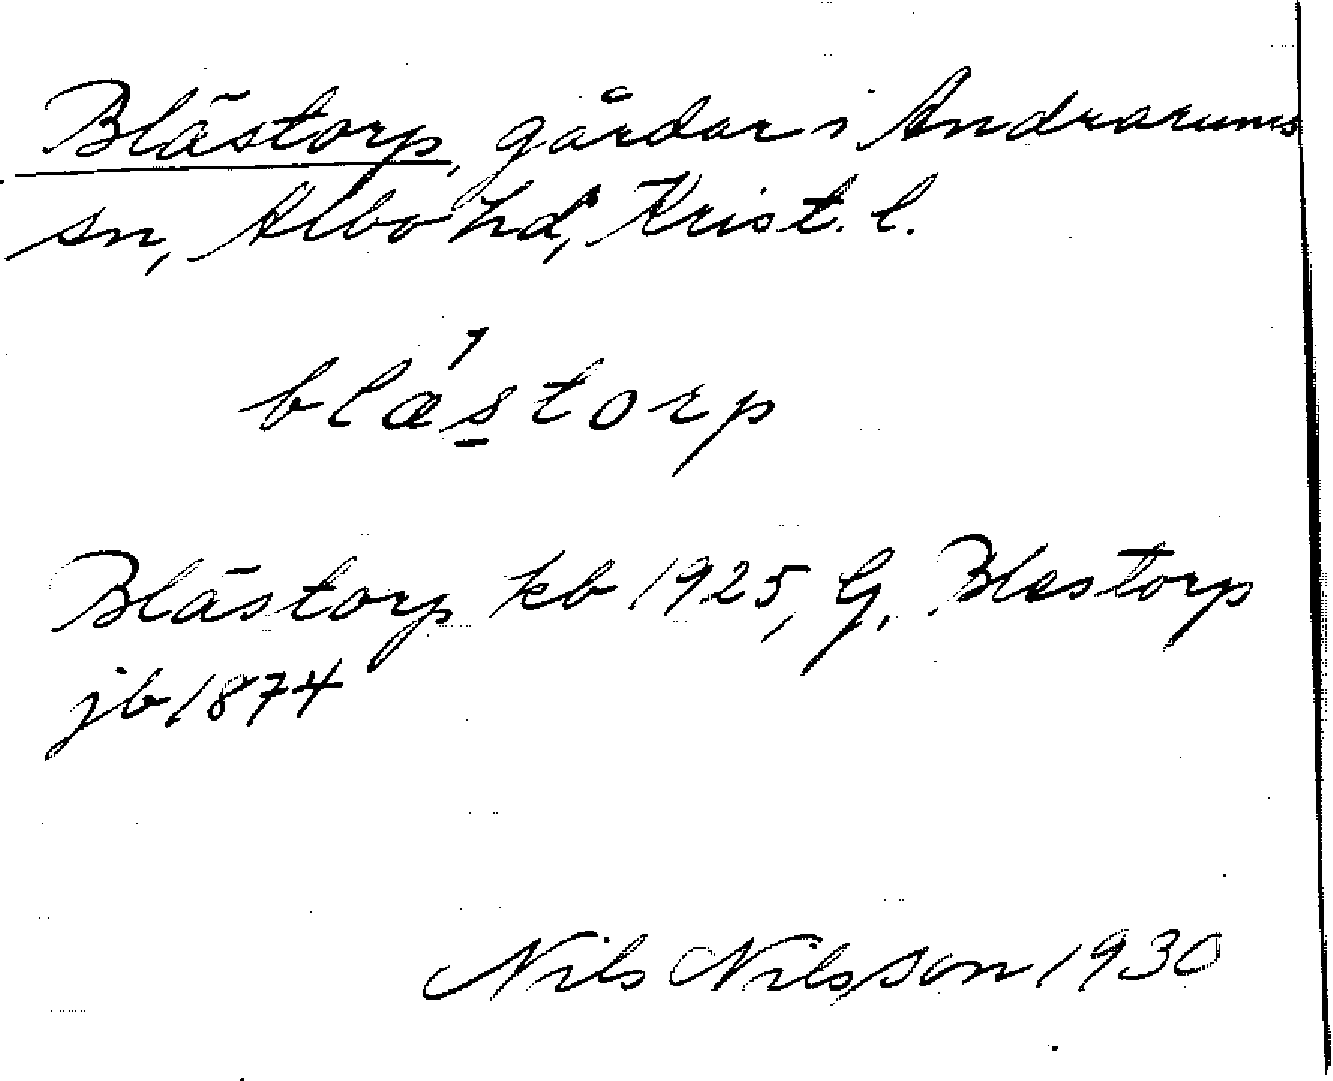 Blästorp, gårdar i Andrarums
sn, Albo hd, Krist. l.
blæ´storp
Blästorp kb 1925, G, Blestorp
jb 1874
Nils Nilsson 1930